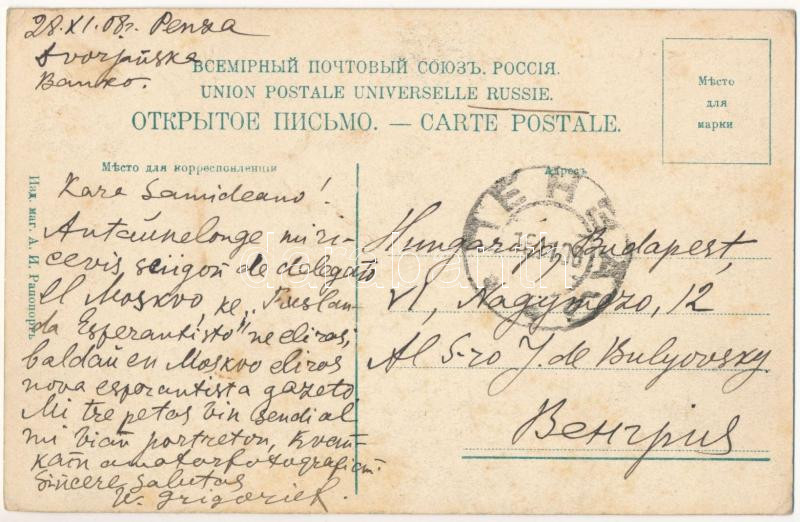 28.XI.08г. Penza
Dvorjanska
Banko.
ВСЕМІРНЫЙ ПОЧТОВЫЙ СОЮЗЪ. РОССІЯ.
UNION POSTALE UNIVERSELLE RUSSIE.
ОТКРЫТОЕ ПИСЬМО. — CARTE POSTALE.
Мѣсто
для
марки
Мѣсто для корреспонденціи
Адресъ
Изд. маг. А. И. Рапопортъ
Kara Samideano!
Antaŭnelonge mi ri-
cevis, sciigon de delegato
el Moskvo, ke „Ruslan-
da Esperantisto" ne eliros,
baldaŭ en Moskvo eliros
nova esperantista gazeto
Mi tre petas vin sendi al
mi vian portreton, kvan-
kam amatorfotografian.
Sincere salutas
Hungarujo, Budapest,
VI, Nagymezo, 12
Al S-ro J. de Bulyovszky.
Венгрия
ПЕНЗА
darabanth